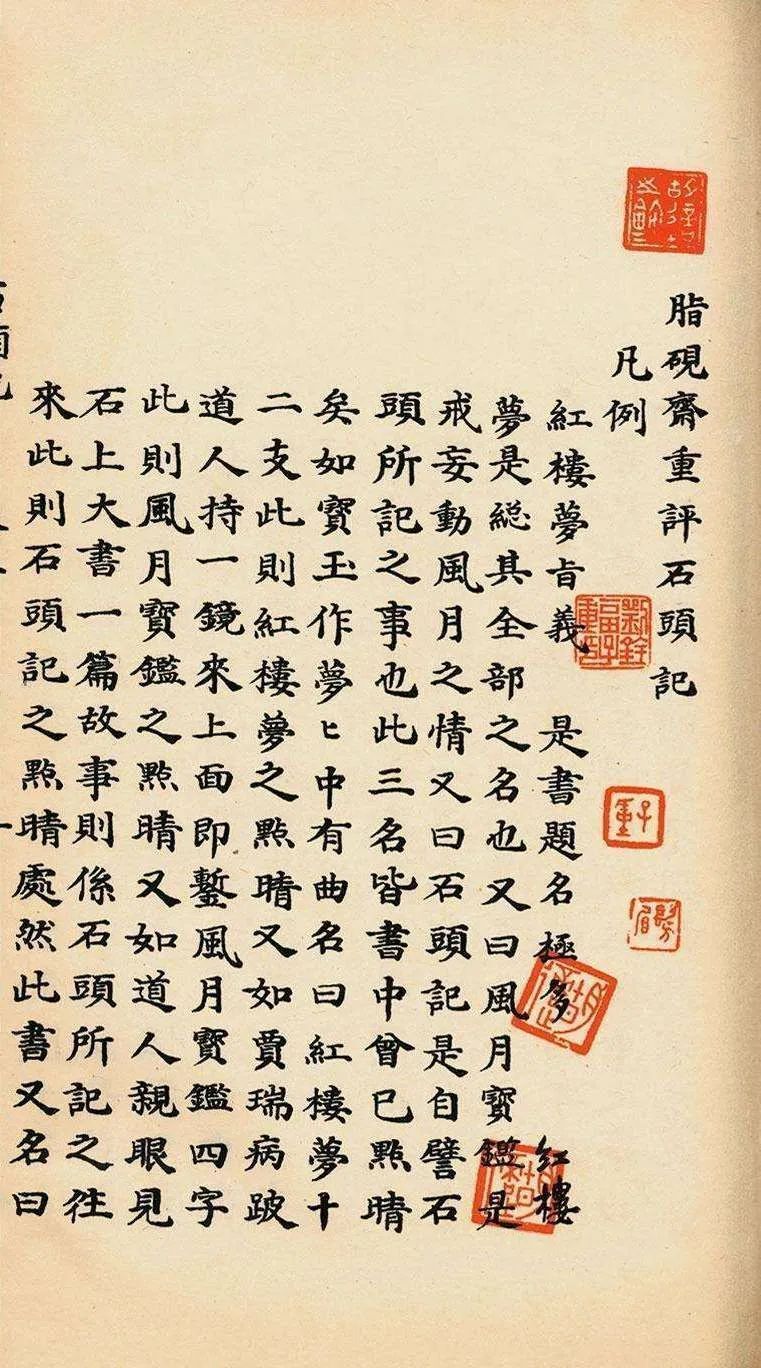 脂硯齋重評石頭記
凡例
紅樓夢旨義　是書題名極多　紅樓
夢是総其全部之名也又曰風月寳鑑是
戒妄動風月之情又曰石頭記是自譬石
頭所記之事也此三名皆書中曾已點晴
矣如寳玉作夢〻中有曲名曰紅樓夢十
二支此則紅樓夢之點晴又如賈瑞病跛
道人持一鏡來上面即鏨風月寳鑑四字
此則風月寳鑑之點晴又如道人親眼見
石上大書一篇故事則係石頭所記之徃
來此則石頭記之點晴處然此書又名曰
劉銓福子重印
子重
髣眉